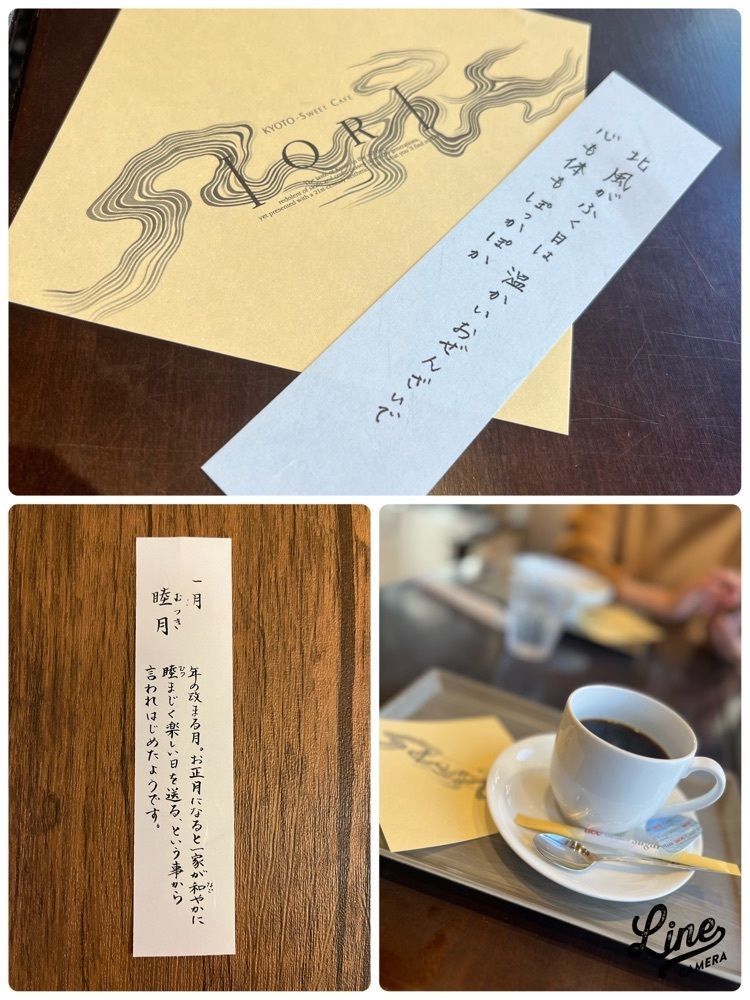 KYOTO-SWEET CAFE
IORI
yet presented with a 21st-century
北風がふく日は 温かいおぜんざいで
心も体も ぽっかぽか
一月
むつき
睦月
年の改まる月。お正月になると一家が和やかに
睦まじく楽しい日を送る、という事から
言われはじめたようです。
Line
CAMERA